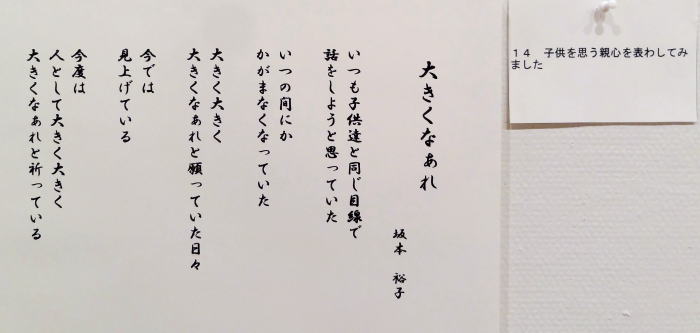 大きくなぁれ
坂本　裕子
いつも子供達と同じ目線で
話をしようと思っていた
いつの間にか
かがまなくなっていた
大きく大きく
大きくなぁれと願っていた日々
今では
見上げている
今度は
人として大きく大きく
大きくなぁれと祈っている
１４　子供を思う親心を表わしてみ
ました